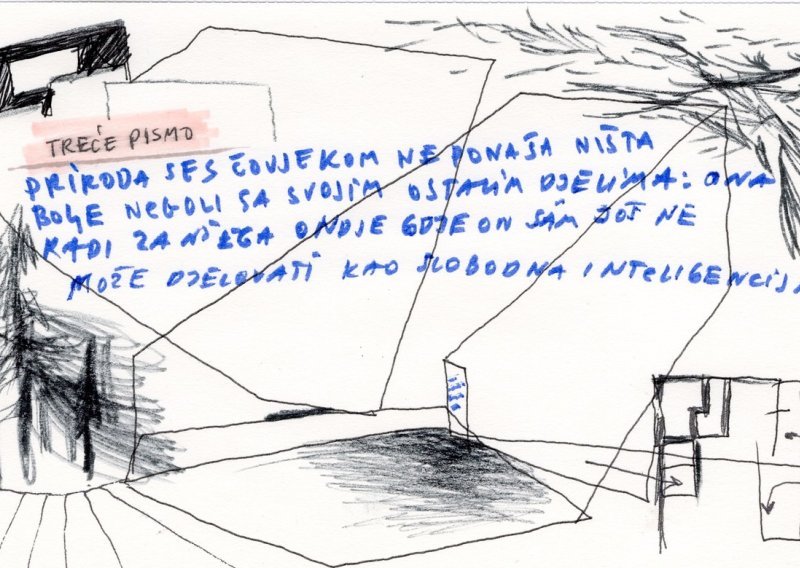 TREĆE PISMO
PRIRODA SE S ČOVJEKOM NE PONAŠA NIŠTA
BOLJE NEGOLI SA SVOJIM OSTALIM DJELIMA: ONA
RADI ZA NJEGA ONDJE GDJE ON SÂM JOŠ NE
MOŽE DJELOVATI KAO SLOBODNA INTELIGENCIJA